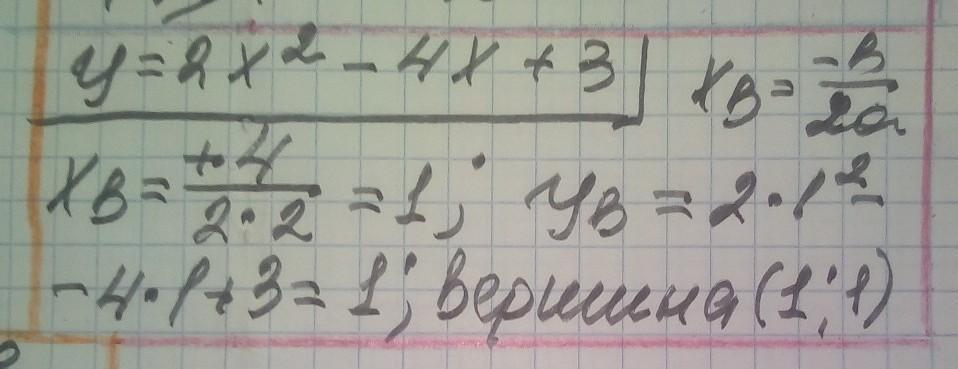 y = 2x² - 4x + 3 xв = -в/2a
xв = +4/2·2 = 1; yв = 2·1² -
-4·1+3 = 1; вершина (1;1)